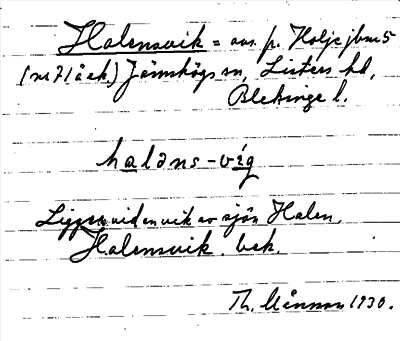 Halensvik = avs. p. Holje jbnr 5
(nr 7 i å ek.) Jämshögs sn, Listers hd,
Blekinge l.
halǝns-víg
Ligger vid en vik av sjön Halen.
Halensvik. bek.
Th. Månsson 1930.